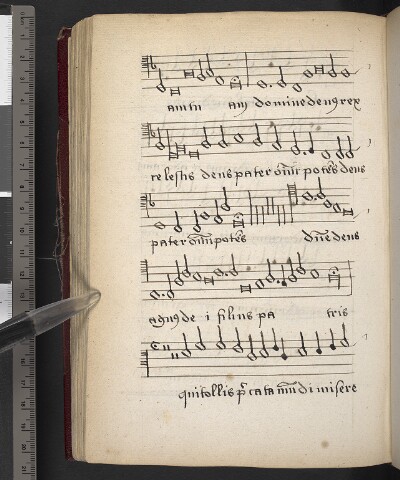 am tu am domine deus rex
celestis deus pater omni potēs deus
pater omnipotēs dñe deus
agnus de i filius pa tris
qui tollis pccata mūdi misere